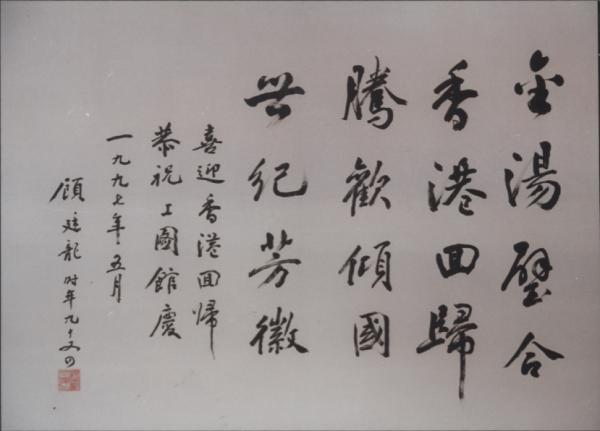 金湯璧合
香港回歸
騰歡傾國
世紀芳徽
喜迎香港回歸
恭祝上圖館慶
一九九七年五月
顧廷龍时年九十又四